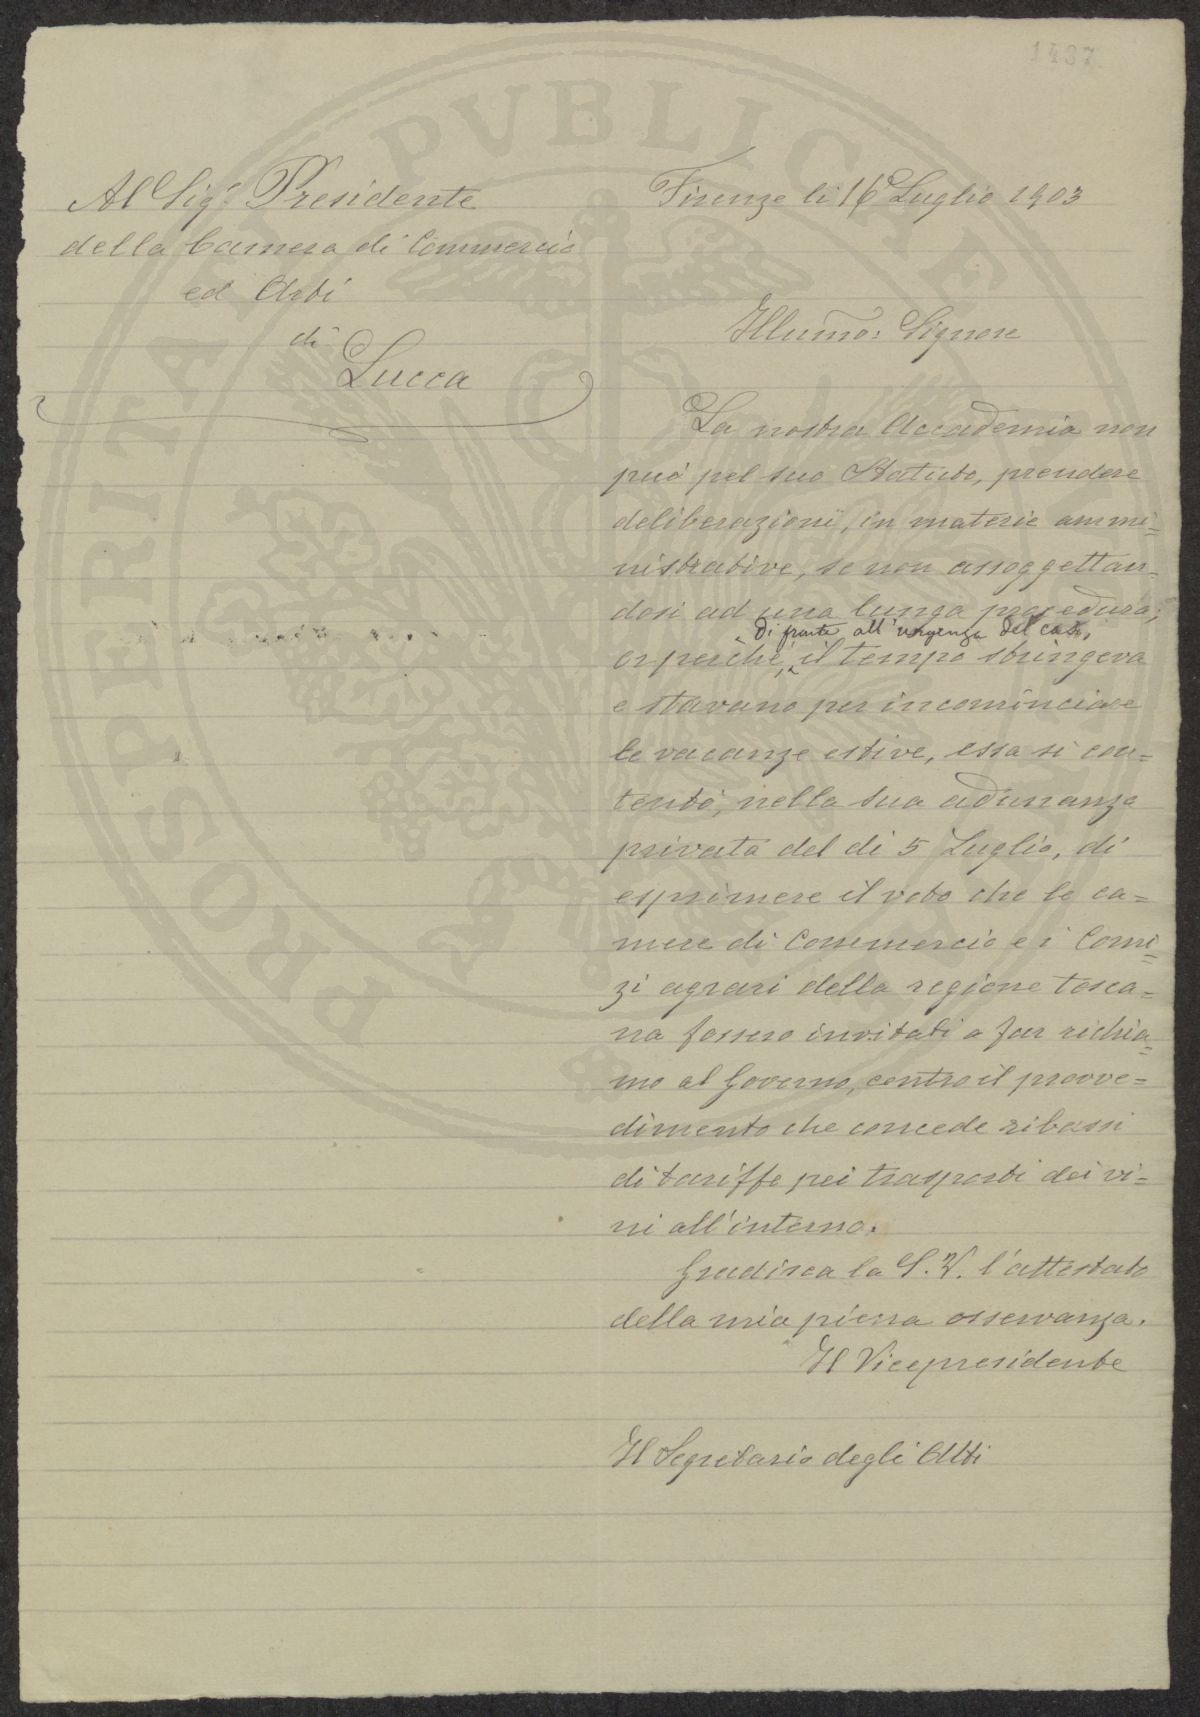 1437
Al Sigr. Presidente
della Camera di Commercio
ed Arti
di
Lucca
Firenze li 16 Luglio 1903
Illumo: Signore
La nostra Accademia non
può pel suo Statuto, prendere
deliberazioni, in materie ammi=
nistrative, se non assoggettan=
dosi ad una lunga procedura;
di fronte all'urgenza del caso,
or perchè, il tempo stringeva
e stavano per incominciare
le vacanze estive, essa si con=
tentò, nella sua adunanza
privata del di 5 Luglio, di
esprimere il voto che le ca=
mere di Commercio e i Comi=
zi agrari della regione tosca=
na fossero invitati a far richia=
mo al Governo, contro il provve=
dimento che concede ribassi
di tariffe pei trasporti dei vi=
ni all'interno.
Gradisca la S. V. l'attestato
della mia piena osservanza.
Il Vicepresidente
Il Segretario degli Atti
PROSPERITATI PVBLICAE